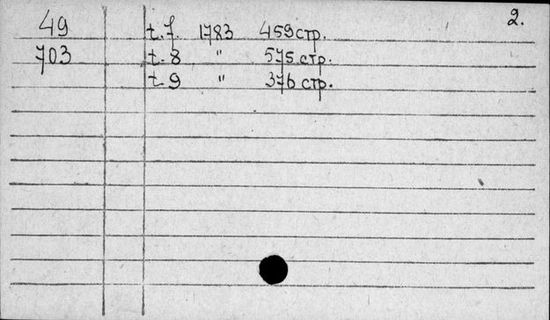 2.
49 t. 7. 1783 459 стр.
703 t. 8 " 575 стр.
t. 9 " 376 стр.